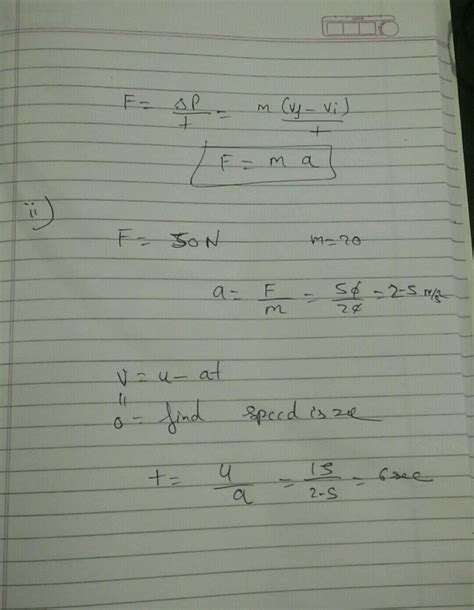 F = ΔP/t = m (vf - vi)/t
F = m a
ii)
F = 50N m=20
a = F/m = 50/20 = 2-5 m/s
v = u - at
"
o = find speed is
t = u/a = 15/2-5 = 6 sec